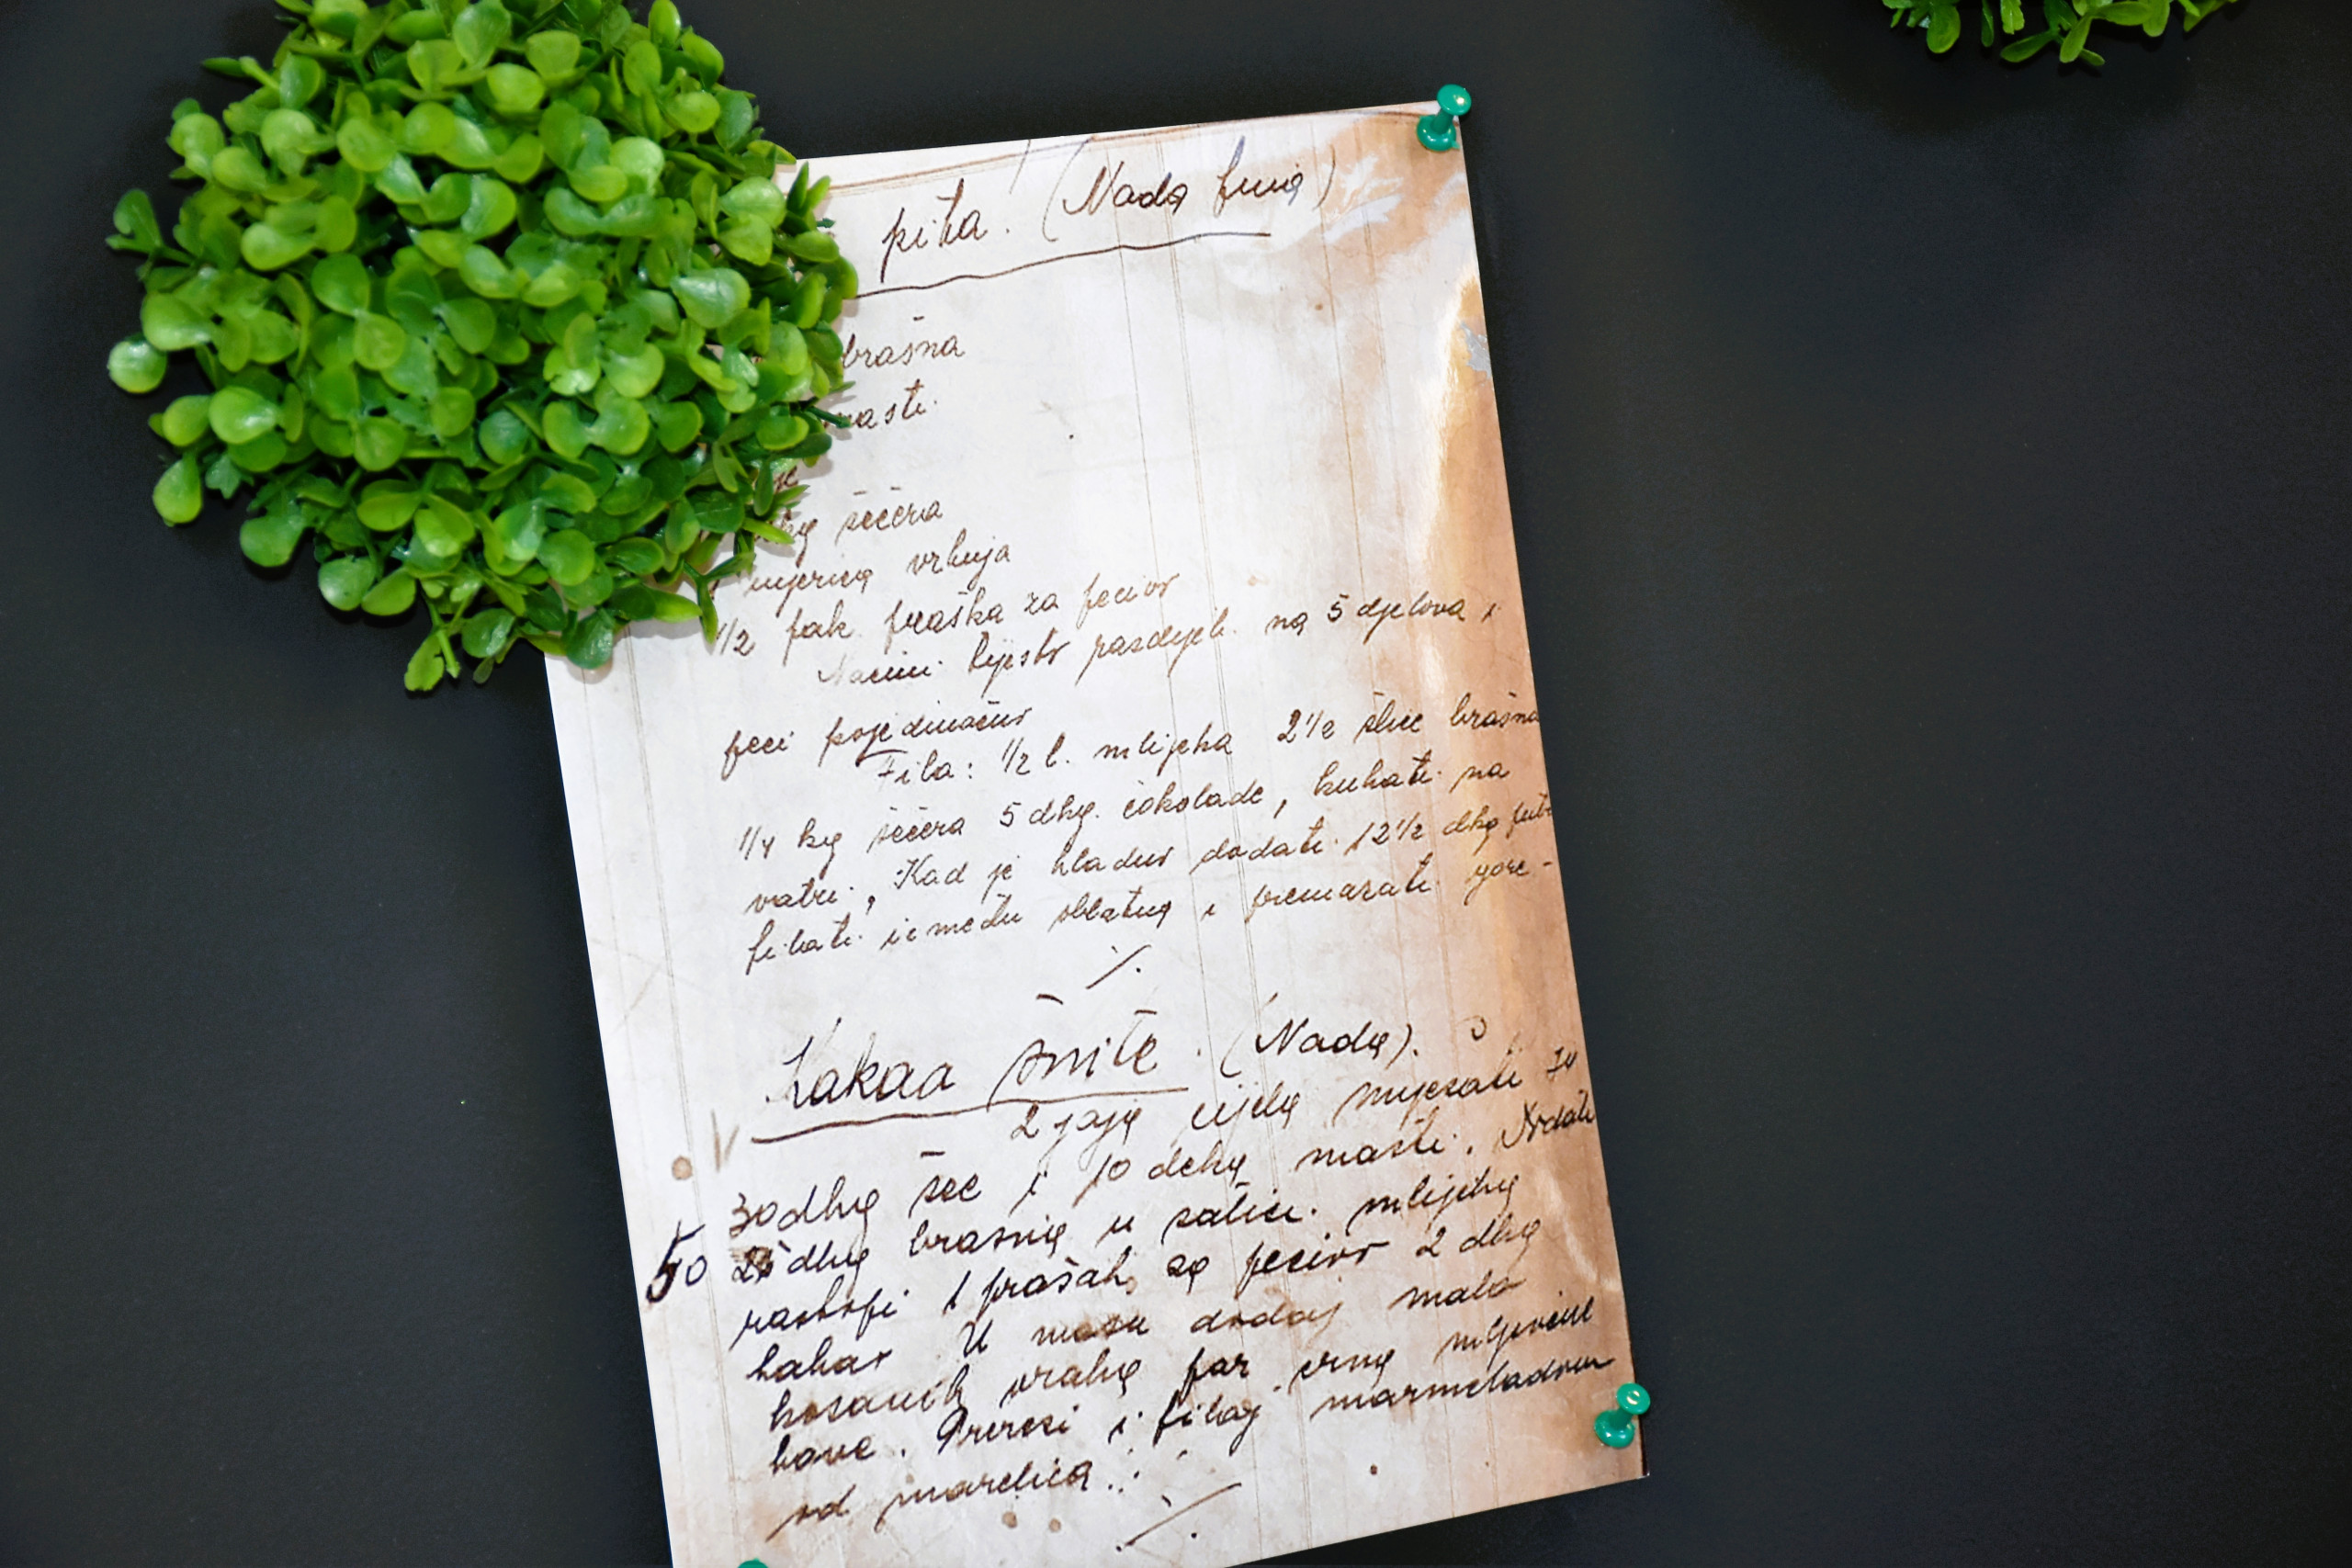 pita. (Nada
brašna
masti.
šećera
vrhnja
1/2 pak. praška za pecivo
Načini tijesto razdijeli na 5 djelova i
peci pojedinačno
Fila: 1/2 l. mlijeka 2 1/2 žlice brašna
1/4 kg šećera 5 dkg. čokolade, kuhati na
vatri, Kad je hladno dodati 12 1/2 dkg
filati između oblatna i premazati gore-
Kakaa šnite. (Nada).
2 jaja cijela mješati
30 dkg šeć i 10 dekg masti. Dodati
50 dkg brašna u mlijeka
rastopi 1 prašak za pecivo 2 dkg
kakao U masu dodaj malo
kosanih oraha par zrna mljevene
kave. Prereži i filaj marmeladom
od marelica.